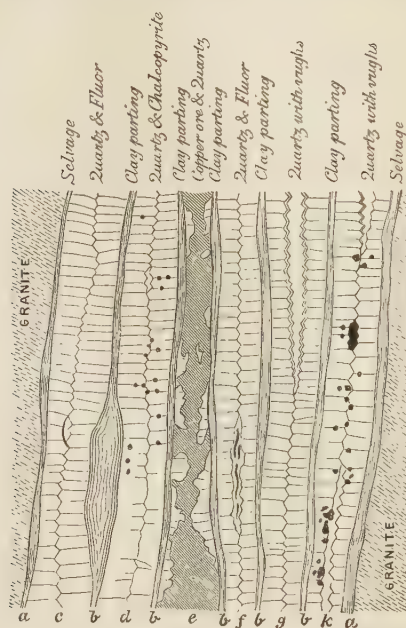 Selvage
Quartz & Fluor
Clay parting
Quartz & Chalcopyrite
Clay parting
Copper ore & Quartz
Clay parting
Quartz & Fluor
Clay parting
Quartz with vughs
Clay parting
Quartz with vughs
Selvage
GRANITE
GRANITE
a c b d b e b f b g b k a